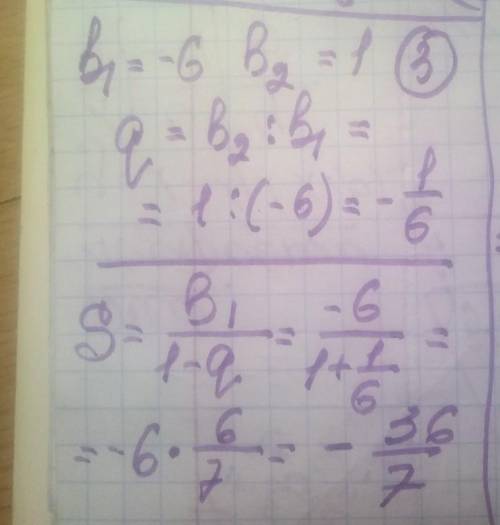 b₁ = -6 b₂ = 1 ③
q = b₂ : b₁ =
= 1 : (-6) = - 1/6
S = b₁/(1-q) = -6/(1+1/6) =
= -6 · 6/7 = - 36/7